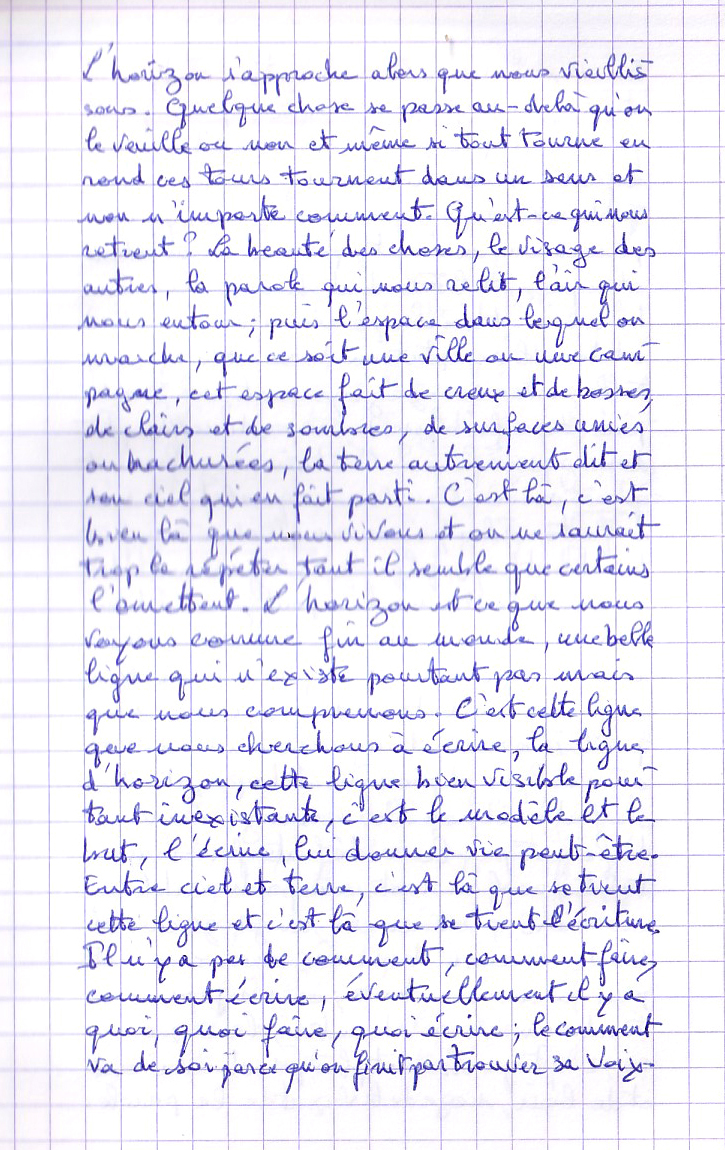 L'horizon s'approche alors que nous vieillis
sons. Quelque chose se passe au-delà qu'on
le veuille ou non et même si tout tourne en
rond ces tours tournent dans un sens et
non n'importe comment. Qu'est-ce qui nous
retient ? La beauté des choses, le visage des
autres, la parole qui nous relit, l'air qui
nous entour ; puis l'espace dans lequel on
marche, que ce soit une ville ou une cam-
pagne, cet espace fait de creux et de bosses,
de clairs et de sombres, de surfaces unies
ou hachurées, la terre autrement dit et
son ciel qui en fait parti. C'est là, c'est
bien là que nous vivons et on ne saurait
trop le répéter tant il semble que certains
l'omettent. L'horizon est ce que nous
voyons comme fin au monde, une belle
ligne qui n'existe pourtant pas mais
que nous comprenons. C'est cette ligne
que nous cherchons à écrire, la ligne
d'horizon, cette ligne bien visible pour-
tant inexistante, c'est le modèle et le
but, l'écrire, lui donner vie peut-être.
Entre ciel et terre, c'est là que se tient
cette ligne et c'est là que se tient l'écriture.
Il n'y a pas de comment, comment faire,
comment écrire, éventuellement il y a
quoi, quoi faire, quoi écrire ; le comment
va de soi parce qu'on finit par trouver sa voix.